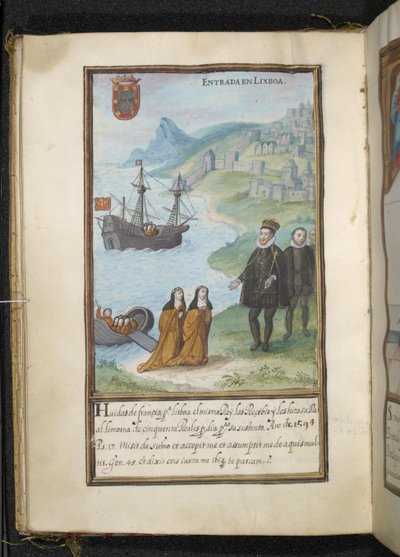 ENTRADA EN LIXBOA.
Huidas de francia pª lisboa el mismo Rey las Recebio y les hizo su Re
al limosna de cinquenta Reales pr dia pª su sustento. Año de. 1594
Ps. 17. Misit de sumo et accepit me et assumpsit me de aquis mul
tis. Gen. 45. Et dixit eris iuxta me ibiq te pascam.